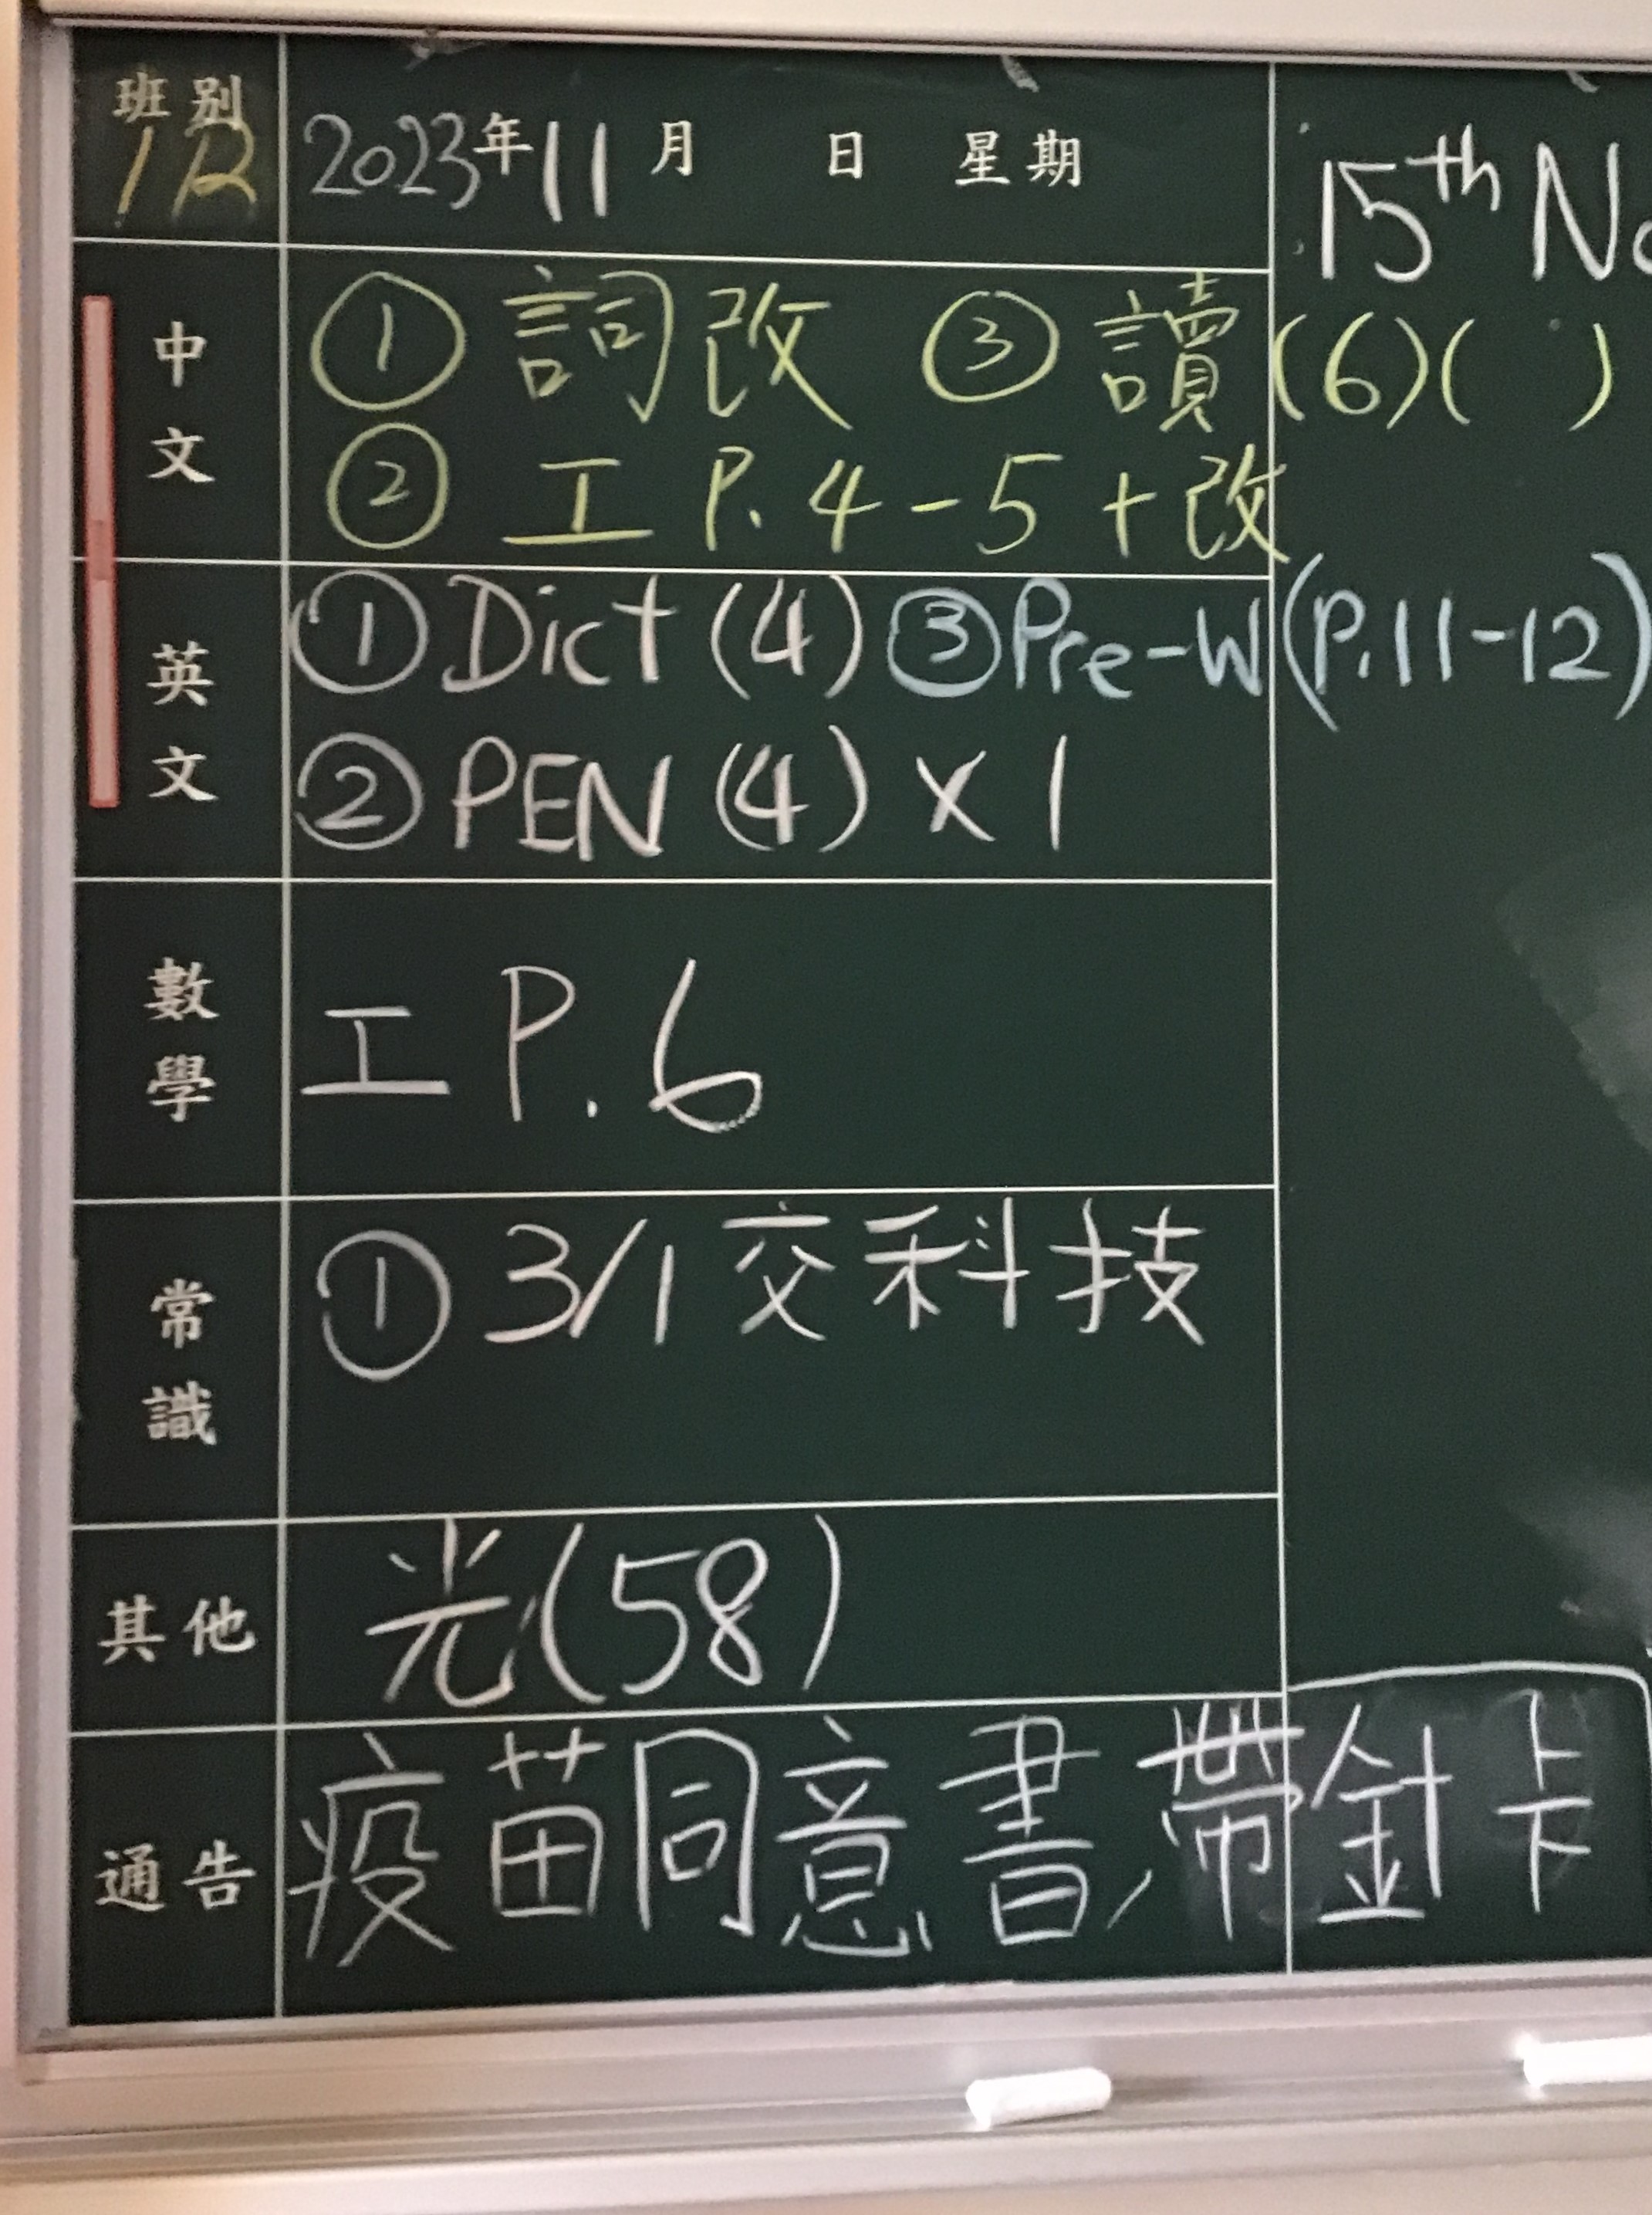 班別
2023年11月 日 星期
15th No
中文
① 詞改 ③ 讀(6)( )
② 工 P.4-5+改
英文
① Dict (4) ③ Pre-W(P.11-12)
② PEN (4) x 1
數學
工 P.6
常識
① 3/1交科技
其他
光(58)
通告
疫苗同意書,帶針卡